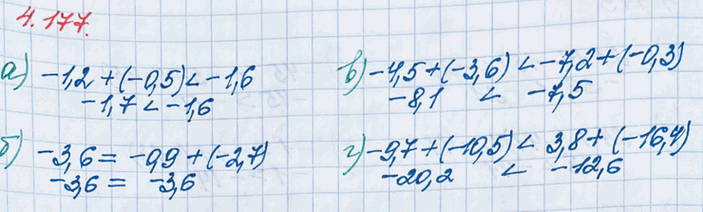 4.177.
а) -1,2 + (-0,5) < -1,6
-1,7 < -1,6
б) -3,6 = -0,9 + (-2,7)
-3,6 = -3,6
в) -4,5 + (-3,6) < -7,2 + (-0,3)
-8,1 < -7,5
г) -9,7 + (-10,5) < 3,8 + (-16,4)
-20,2 < -12,6